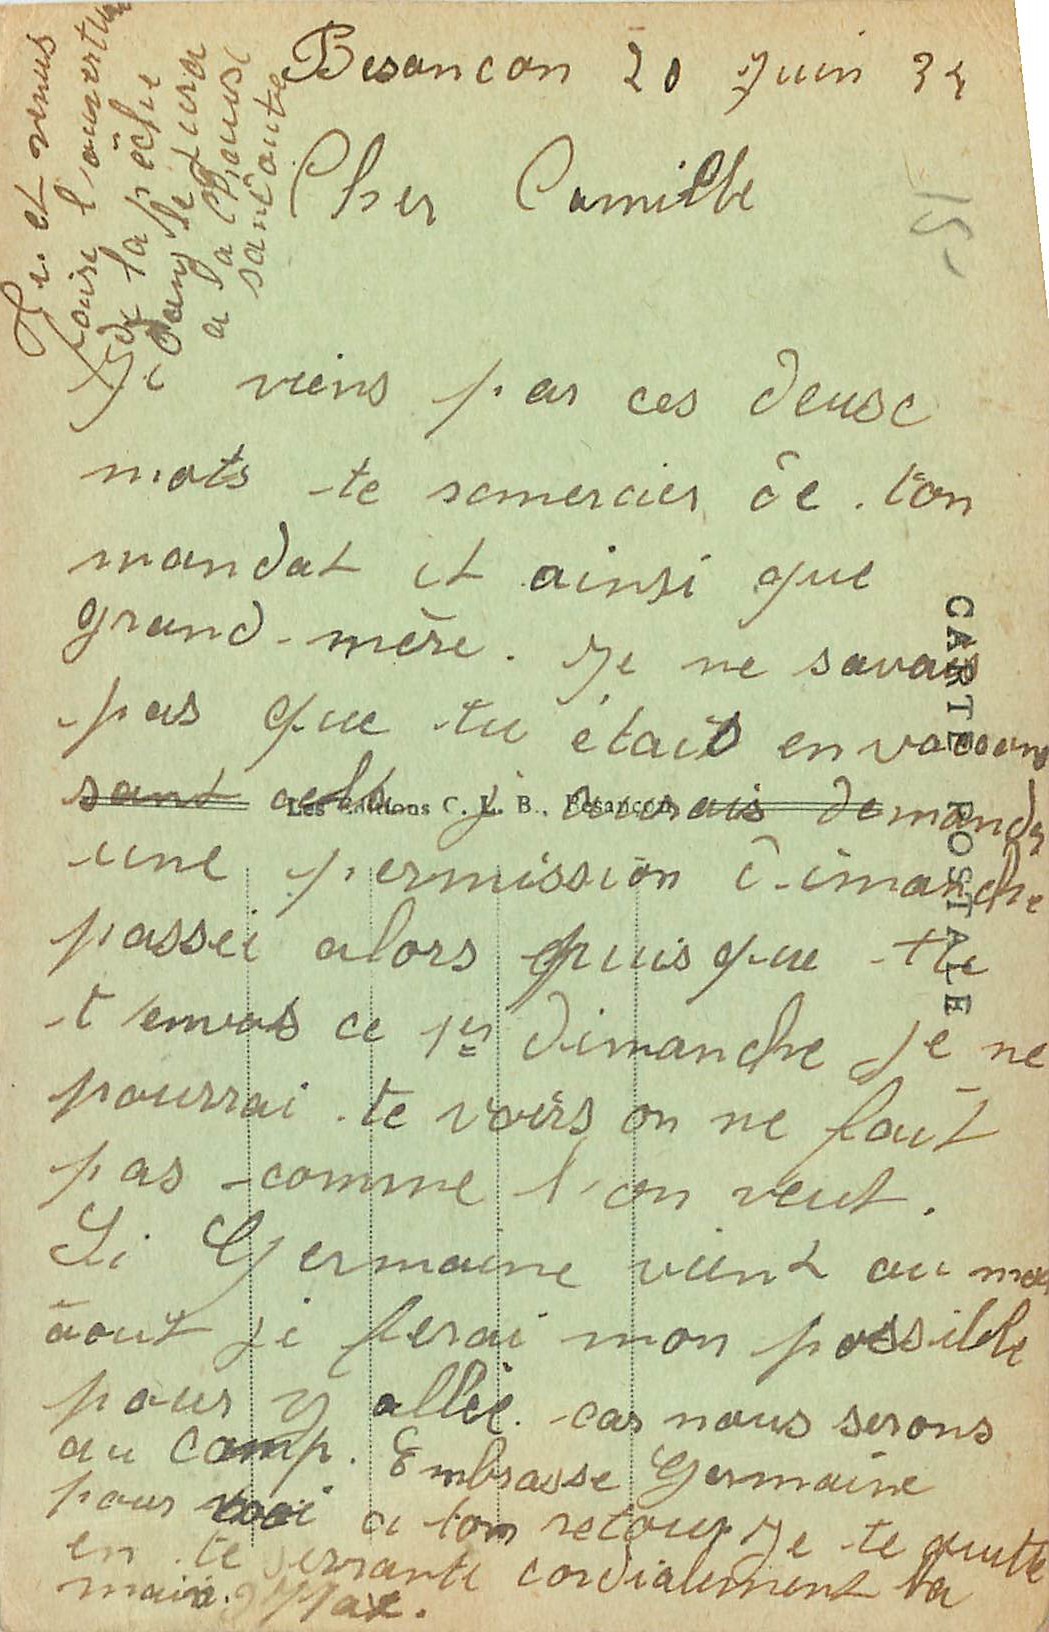 Besancon 20 Juin 34
Cher Camille
15-
Je viens par ces deusc
mots te remercier de ton
mandat et ainsi que
grand-mère. Je ne savais
pas que tu étais en vacance
sant cella j aurais demander
une permission dimanche
passei alors puisque tu
t envas ce 1er dimanche je ne
pourrai te voirs on ne fait
pas comme l'on veut.
Si Germaine vient au mois
âout je ferai mon possible
pour y allée. car nous serons
au camp. Embrasse Germaine
pour moi a ton retour. Je te quitte
en te serrante cordialement la
main. Max.
Tu et venus
faire l'ouvertur
de la pêche
dans le Jura
a a Chause
sancoute
CARTE POSTALE
Les Editions C. L. B., Besançon